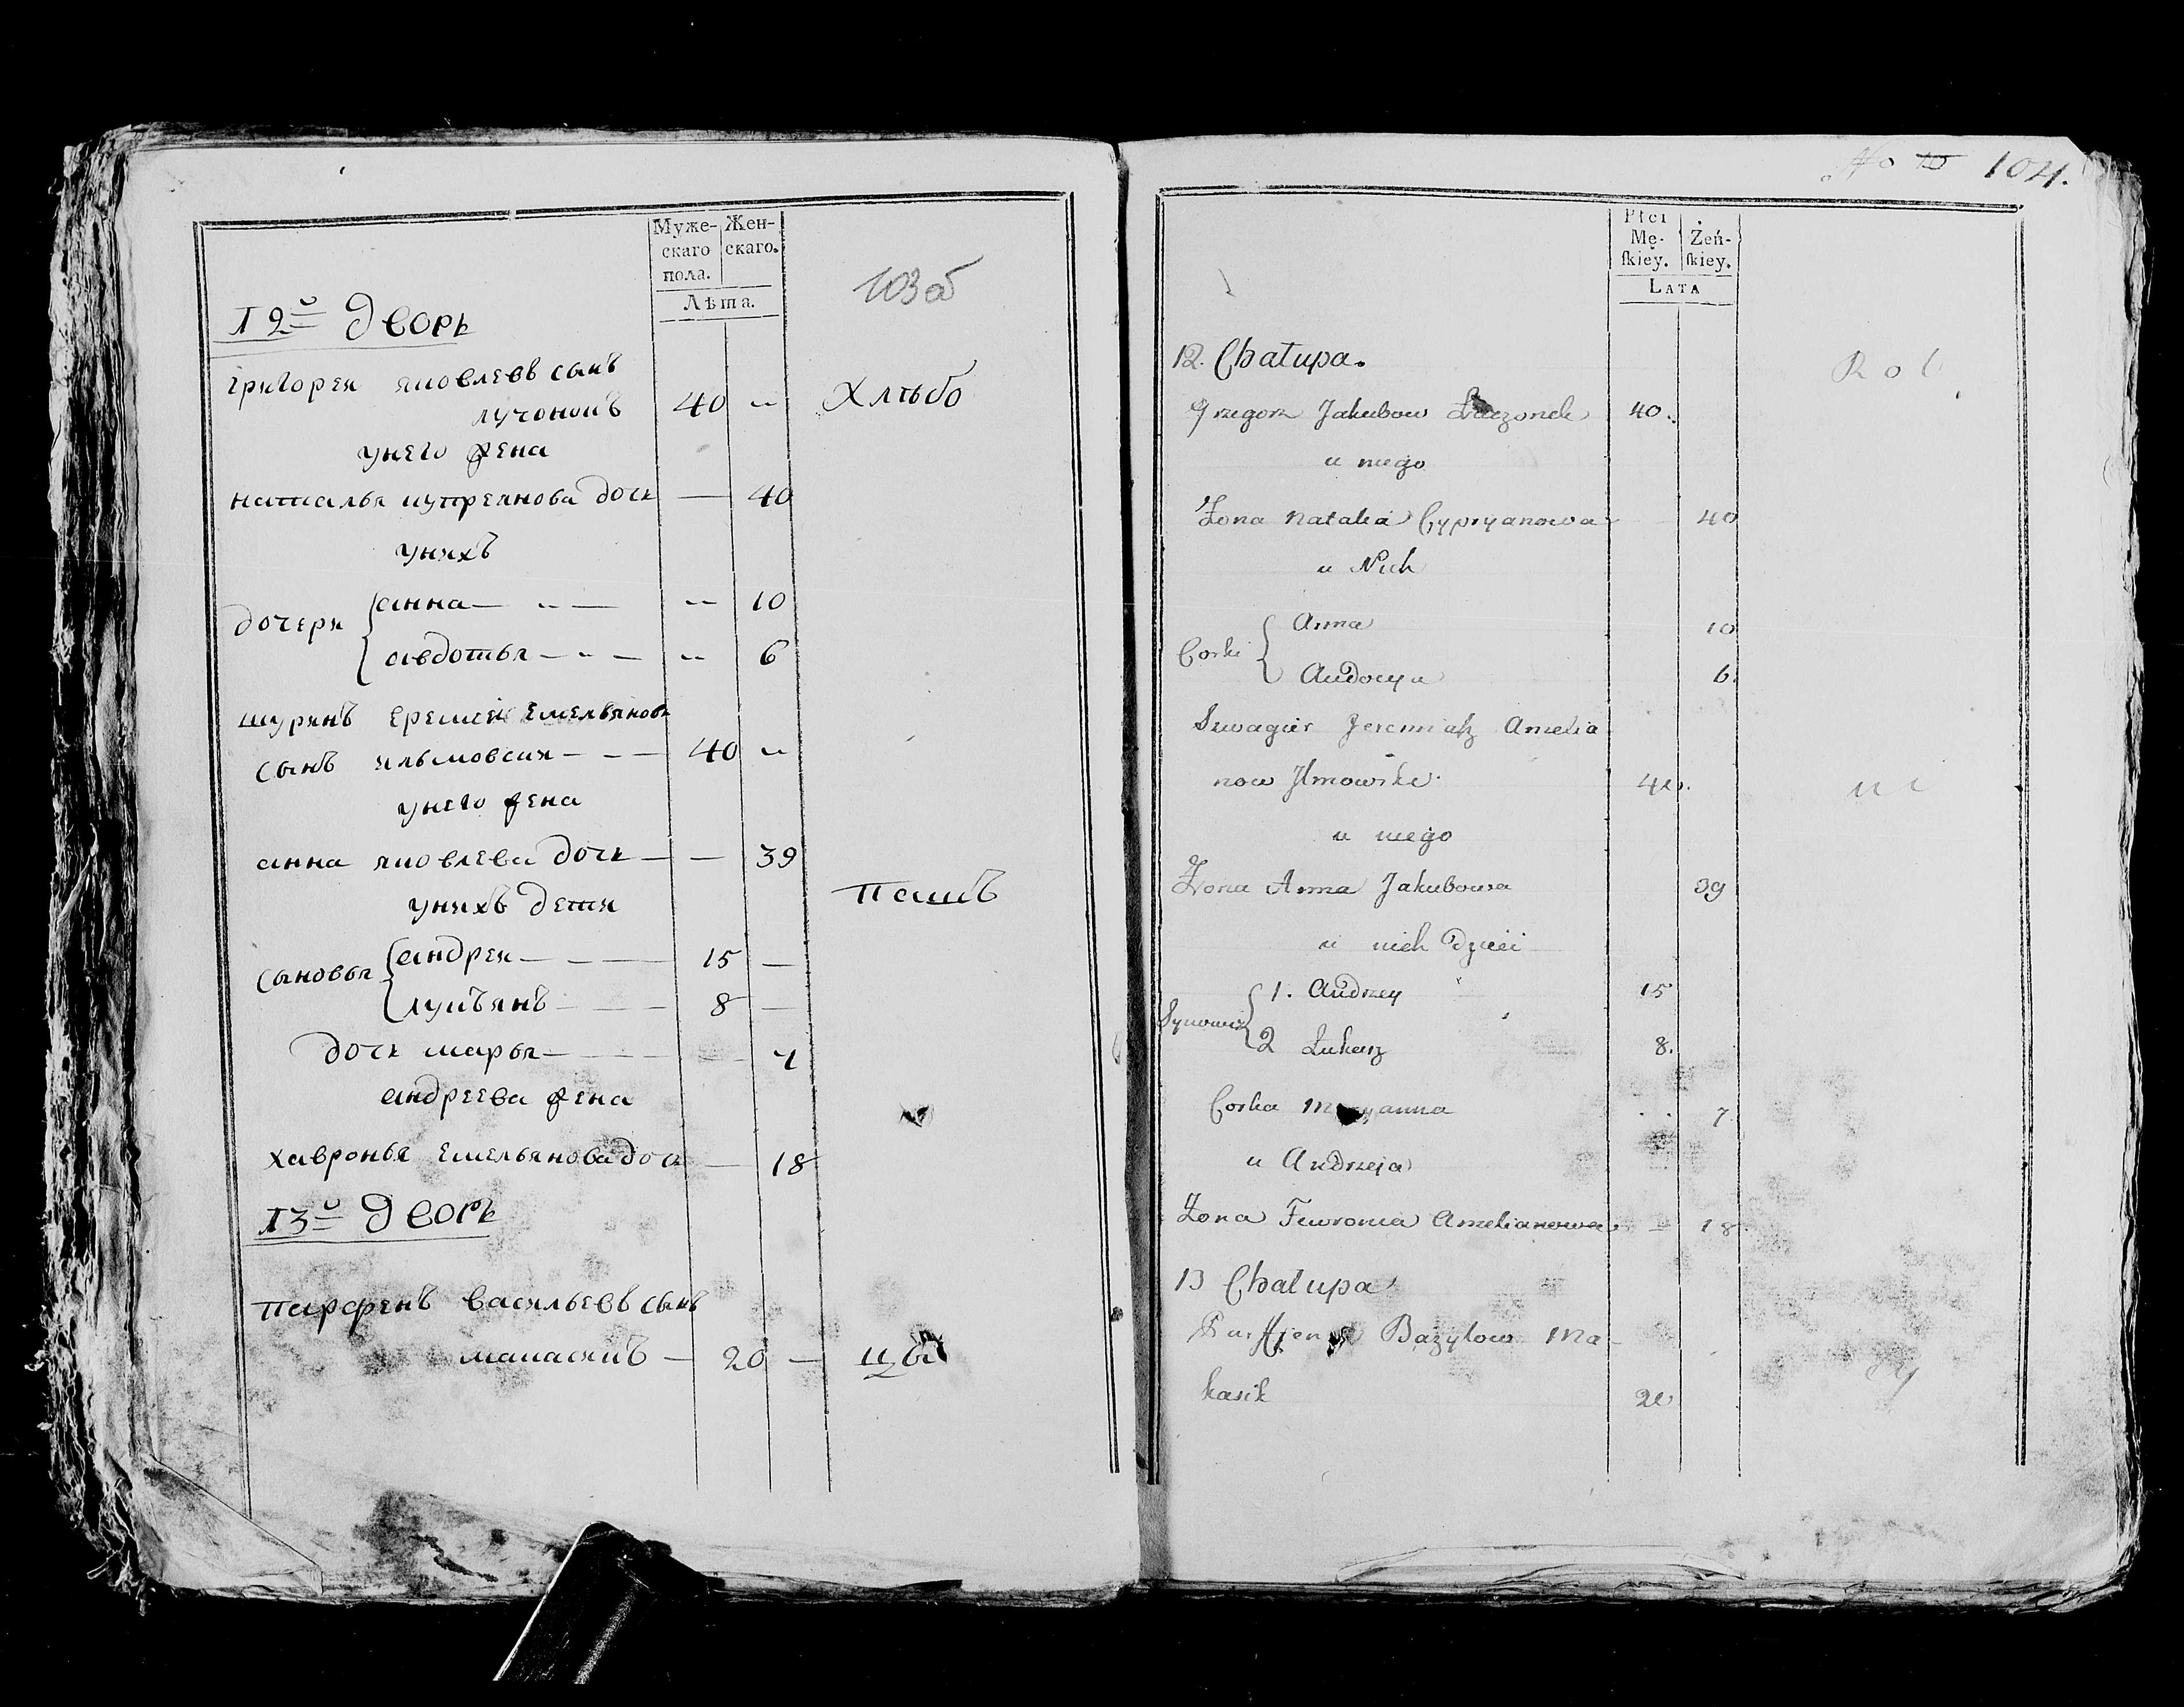 Муже-
скаго
пола.
Жен-
скаго.
Лѣта.
103об
12й дворъ
григореи яковлевъ сынъ
лучонокъ 40 - Хлѣбо
унего жена
наталья купреянова дочь — 40
унихъ
дочери
анна — - — - 10
авдотья — - — - 6
шуринъ еремеи емельяновъ
сынъ ильмовски — - — 40 -
унего жена
анна яковлева дочь — — 39
унихъ дети
паш​ъ
сыновья
андреи — — — 15 —
лукъянъ — — — 8 —
дочь марья — — — 7
андреева жена
хавронья емельянова доч — 18
13й дворъ
парфенъ васильевъ сынъ
макасикъ — 20 —
No 10 104.
Płci
Mę-
skiey.
Żeń-
skiey.
LATA
12. Chałupa.
Rol
Grzegorz Jakubow Łuczonek 40.
u niego
Żona Natalia Cypryanowa 40
u Nich
Corki
Anna 10
Audocya 6.
Szwagier Jeremiasz Amelia
now Jlmowski 40.
u niego
Żona Anna Jakubowa 39
u nich Dzieci
Synowie
1. Andrzey 15
2 Łukasz 8.
Corka Maryanna 7.
u Andrzeja
Żona Fewronia Amelianowa — 18.
13 Chałupa
Parfjen Bazylow Ma-
kasik 20